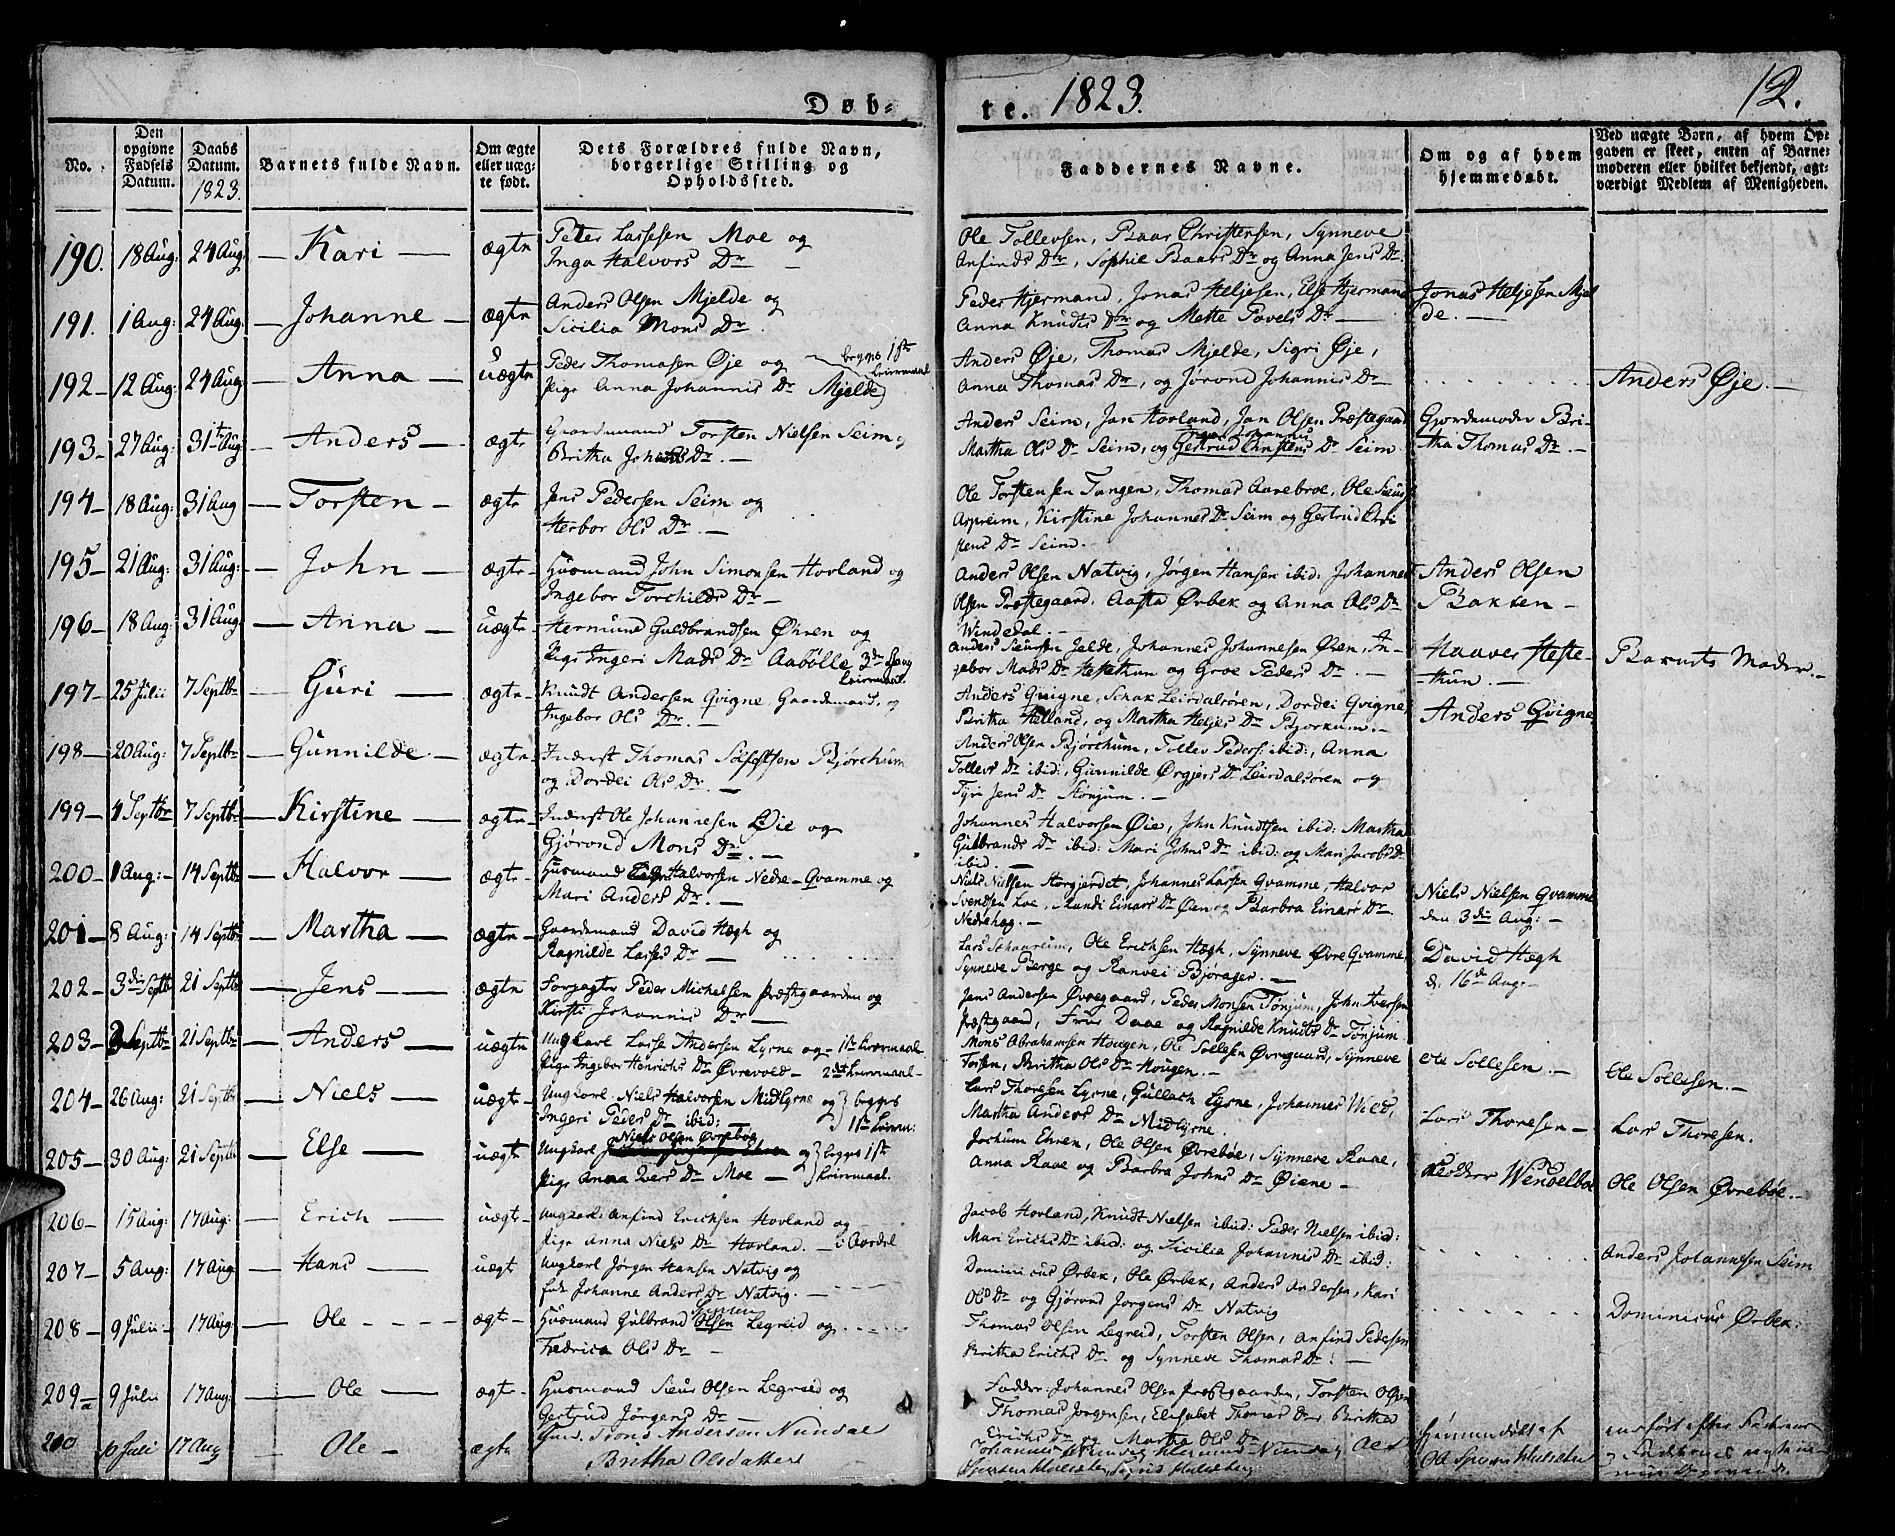 Døb-
te. 1823.
12.
No.
Den opgivne Fødsels Datum.
Daabs Datum. 1823.
Barnets fulde Navn.
Om ægte eller uæg-te født.
Dets Forældres fulde Navn, borgerlige Stilling og Opholdssted.
Faddernes Navne.
Om og af hvem hjemmedøbt.
Ved uægte Børn, af hvem Op-gaven er skeet, enten af Barne-moderen eller hvilket bekjendt, agt-værdigt Medlem af Menigheden.
190. 18 Aug: 24 Aug: — Kari — ægte
Peter Lassesen Moe og
Inga Halvors Dr —
Ole Tollevsen, Baar Christensen, Synneve
Anfinds Dr, Sophie Baars Dr og Anna Jens Dr.
191. 1 Aug: 24 Aug: — Johanne — ægte
Anders Olsen Mjelde og
Sicilia Mons Dr.
Peder Hjermand, Jonas Heljesen, Else Hjermand
Anna Knudts Dr og Mette Povels Dr —
Jonas Heljesen Mjel
de. —
192 — 12 Aug: 24 Aug: — Anna — uægte
Peder Thomasen Øje og
Pige Anna Johannis Dr Mjelde
begges 1ste
Leiermaal.
Anders Øje, Thomas Mjelde, Sigri Øje,
Anna Thomas Dr, og Jørond Johannis Dr
Anders Øje. —
193 — 27 Aug: 31te Aug: — Anders — ægte
Gaardmand Torsten Nielsen Seim og
Britha Johans Dr. —
Anders Seim, Jan Hovland, Jan Olsen Præstegaard
Martha Ols Dr Seim, og Gertrud Christens Dr Seim
Gjordemoder Bri-
tha Thomas Dr. —
194 — 18 Aug: 31 Aug — Torsten — ægte
Jens Pedersen Seim og
Herbor Ols Dr. —
Ole Torstensen Tangen, Thomas Aarebroe, Ole Siurs
Aspreim, Kirstine Johannes Dr Seim og Gertrud Chri
stens Dr Seim.
195 — 21 Aug: 31 Aug: — John — ægte
Huusmand John Simonsen Hovland og
Ingebor Torchilds Dr —
Anders Olsen Natvig, Jørgen Hansen ibid. Johannes
Olsen Præstegaard, Aasta Ørbek og Anna Ols Dr
Windedal. —
Anders Olsen
Bakken —
196 — 18 Aug: 31 Aug: — Anna — uægte
Hermund Guldbrandsen Øhren og
Pige Ingeri Mads Dr Aabølle 3die Gang
Leiermaal.
Anders Siursen Jelde, Johannes Johannesen Øren, In-
gebor Mads Dr Hestethun og Groe Peders Dr. —
Haaver Heste-
thun. —
Barnets Moder. —
197 — 25 Julii 7 Septbr — Guri — ægte
Knudt Andersen Qvigne, Gaardmand, og
Ingebor Ols Dr. —
Anders Qvigne, Schak Leirdalsøren, Dordei Qvigne,
Britha Helland, og Martha Heljes Dr Bjorkum. —
Anders Qvigne
198 — 20 Aug: 7 Septbr — Gunnilde — ægte
Inderst Thomas Bjørchum
og Dordei Ols Dr. —
Anders Olsen Bjørchum, Tollev Peders: ibid:, Anna
Tollevs Dr ibid:, Gunnilde Ørgjers Dr Leirdalsøren og
Tyri Jens Dr Stønjum. —
199 — 4 Septbr 7 Septbr — Kirstine — ægte
Inderst Ole Johannesen Øie og
Gjørond Mons Dr. —
Johannes Halvorsen Øie, John Knudtsen ibid: Martha
Gulbrands Dr ibid: Mari Johns Dr ibid: og Mari Jacobs Dr
ibid. —
200 — 1 Aug: — 14 Septbr — Halvor — ægte
Huusmand Halvorsen Nedre-Qvamme og
Mari Anders Dr. —
Niels Nielsen Storgjerdet, Johannes Larsen Qvamme, Halvor
Svendsen Loe, Randi Einars Dr Øien og Barbra Einars Dr
Nedrehag. —
Niels Nielsen Qvamme
den 3die Aug: —
201 — 8 Aug: 14 Septbr — Martha — ægte
Gaardmand David Hægh og
Ragnilde Lasses Dr —
Lars Schaareim, Ole Erichsen Hægh, Synneve Øvre Qvamme,
Synneve Berge og Ranvei Bjørager. —
David Hægh
d: 16de Aug: —
202 — 3die Septbr 21 Septbr — Jens — ægte
Forpagter Peder Michelsen Præstegaarden og
Kirsti Johannis Dr —
Jens Andersen Øvregaard, Peder Monsen Tønjum, John Iversen
Præstgaard, Frue Daae og Ragnilde Knudts Dr Tønjum
203 — 2 Septbr 21 Septbr — Anders — uægte
Ungkarl Lasse Andersen Lyrne og — 1ste Leiermaal.
Pige Ingebor Henrichs Dr Øvrevold — 2det Leiermaal —
Mons Abrahamsen Hougen, Ole Sollesen Øvregaard, Synneve
Torsten, Britha Ols Dr Hougen. —
Ole Sollesen. —
Ole Sollesen. —
204 — 26 Aug: 21 Septbr — Niels — uægte
Ungkarl Niels Halvorsen Midlyrne og
Ingeri Peders Dr ibid:
begges
1ste Leierm:
Lars Thoresen Lyrne, Gullach Lyrne, Johannes
Martha Anders Dr Midlyrne.
Lars Thoresen —
Lars Thoresen.
205 — 30 Aug: 21 Septbr — Else — uægt
Niels Olsen Øvrebøe
Ungkarl og
Pige Anna Ivers Dr Moe —
begges 1ste
Leiermaal.
Jochum Ehren, Ole Olsen Øvrebøe, Synneve Raae,
Anna Raae og Barbra Johns Dr Øiene —
Wendelboe
Ole Olsen Øvrebøe. —
206 — 15 Aug: 17 Aug: — Erich — uægte
Ungkarl: Anfind Erichsen Hovland og
Pige Anna Niels Dr Hovland. — i Aardal
Jacob Hovland, Knudt Nielsen ibid: Peder Nielsen ibid:
Mari Erichs Dr ibid: og Sicilia Johannis Dr ibid:
Anders Johannesen Seim
207 — 5 Aug: 17 Aug — Hans — uægt
Ungkarl Jørgen Hansen Natvig og
Johanne Anders Dr Natvig. —
Dominicus Ørbek, Ole Ørbek, Anders Andersen, Kari
Ols Dr og Gjørond Jørgens Dr Natvig
Dominicus Ørbek:
208 — 9 Julii — 17 Aug: — Ole — ægt —
Huusmand Gulbrand Olsen Legreid og
Fredrica Ols Dr —
Thomas Olsen Legreid, Torsten Olsen, Anfind Pedersen
Britha Erichs Dr og Synneve Thomas Dr: —
209a 9 Julii 17 Aug: — Ole — ægte —
Huusmand Siur Olsen Legreid og
Gertrud Jörgens Dr —
Fadder: Johannes Olsen Præstgaarden, Torsten Olsen
Thomas Jørgensen, Elisabet Thomas Dr Britha
Erichs Dr og Martha Ols Dr
10 Juli 17 Aug — Ole — ægte
Anderson Nundal
Britha Olsdatter
Hjemmedøbt af
Ole